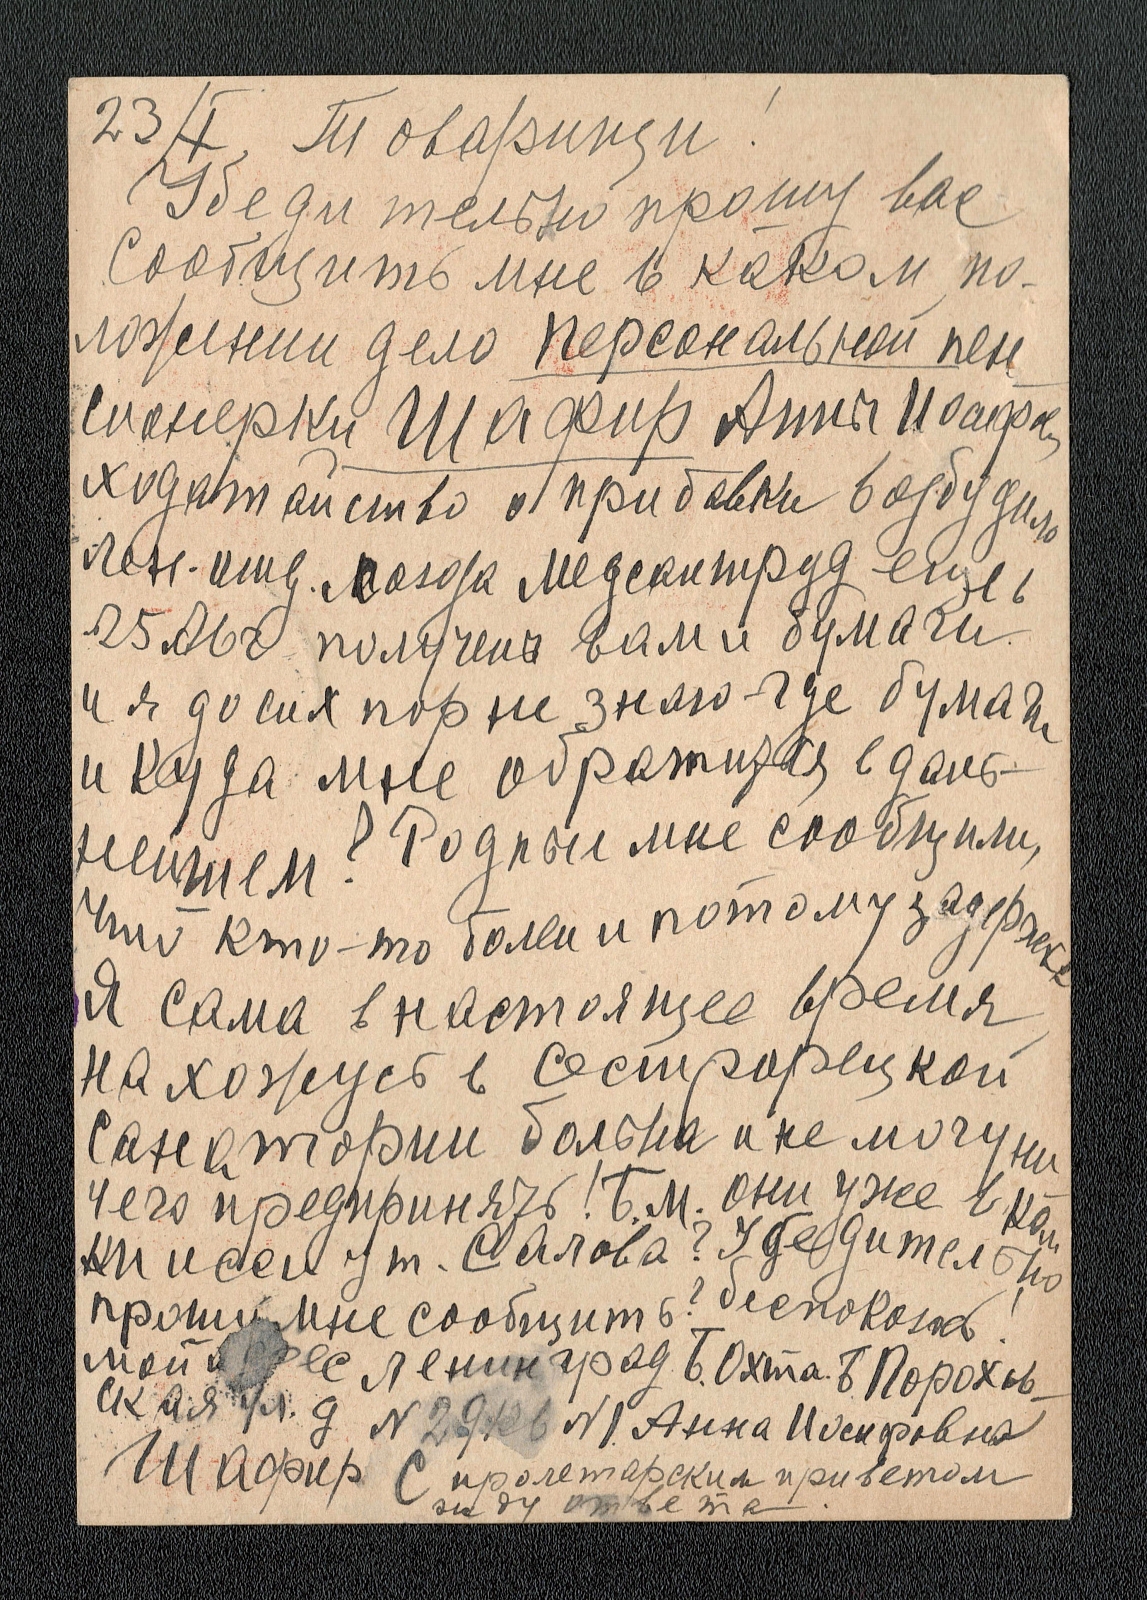 23/X. Товарищи!
Убедительно прошу вас
сообщить мне в каком по-
ложении дело персональной пен
сионерки Шафир Анны Иосифов,
ходатайство о прибавки возбудило
лен. союза Медсантруд еще в
25 Авг получены вами бумаги
и я до сих пор не знаю где бумаги
и куда мне обратится в даль-
нейшем? Родные мне сообщили,
что кто-то болен и потому задержка
Я сама в настоящее время
нахожусь в Сестрорецкой
санатории больна и не могу ни
чего предпринять! Б.М. они уже в кан
ки и сеи у т. Убедительно
прошу мне сообщить? беспокоюсь!
мой адрес Ленинград Б. Охта. Б Порохов-
ская ул. д N 29 кв N 1. Анна Иосифовна
Шафир С пролетарским приветом
жду ответа.